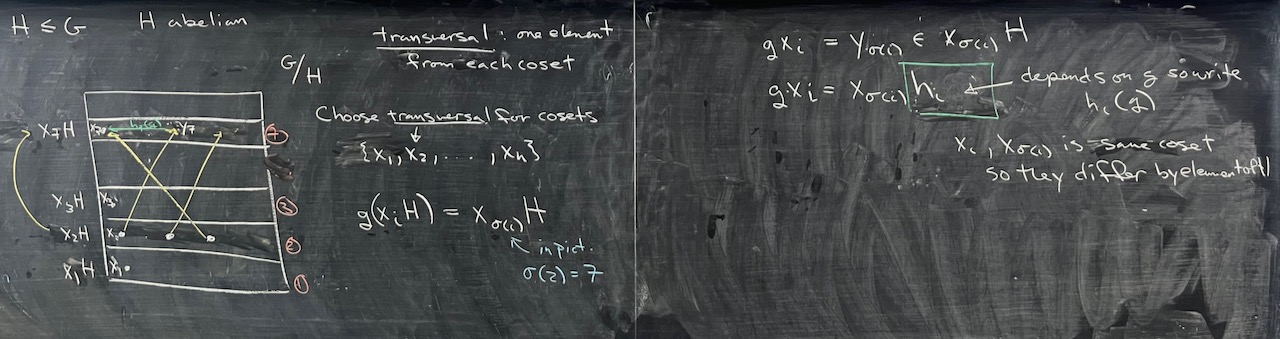 H ≤ G H abelian
transversal : one element
from each coset
G/H
Choose transversal for cosets
{x₁, x₂, ..., xₙ}
g(xᵢH) = x_σ(i) H
in pict.
σ(2) = 7
x₇H x₇ y₇ ⑦
x₃H x₃ ③
x₂H x₂ ②
x₁H x₁ ①
gxᵢ = y_σ(i) ∈ x_σ(i) H
gxᵢ = x_σ(i) hᵢ depends on g so write
hᵢ(g)
xᵢ, x_σ(i) is same coset
so they differ by element of H